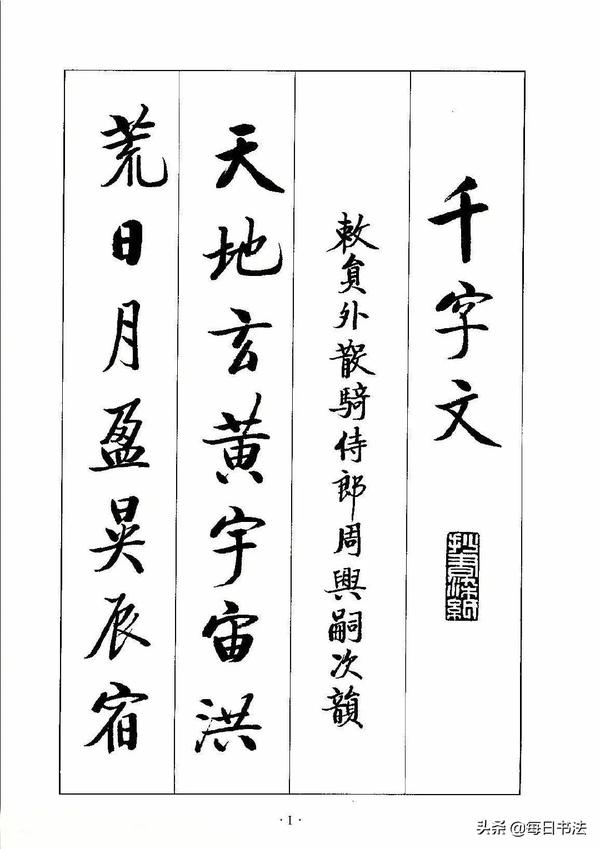 千字文
敕員外散騎侍郎周興嗣次韻
天地玄黃宇宙洪
荒日月盈昃辰宿
·1·
头条@每日书法